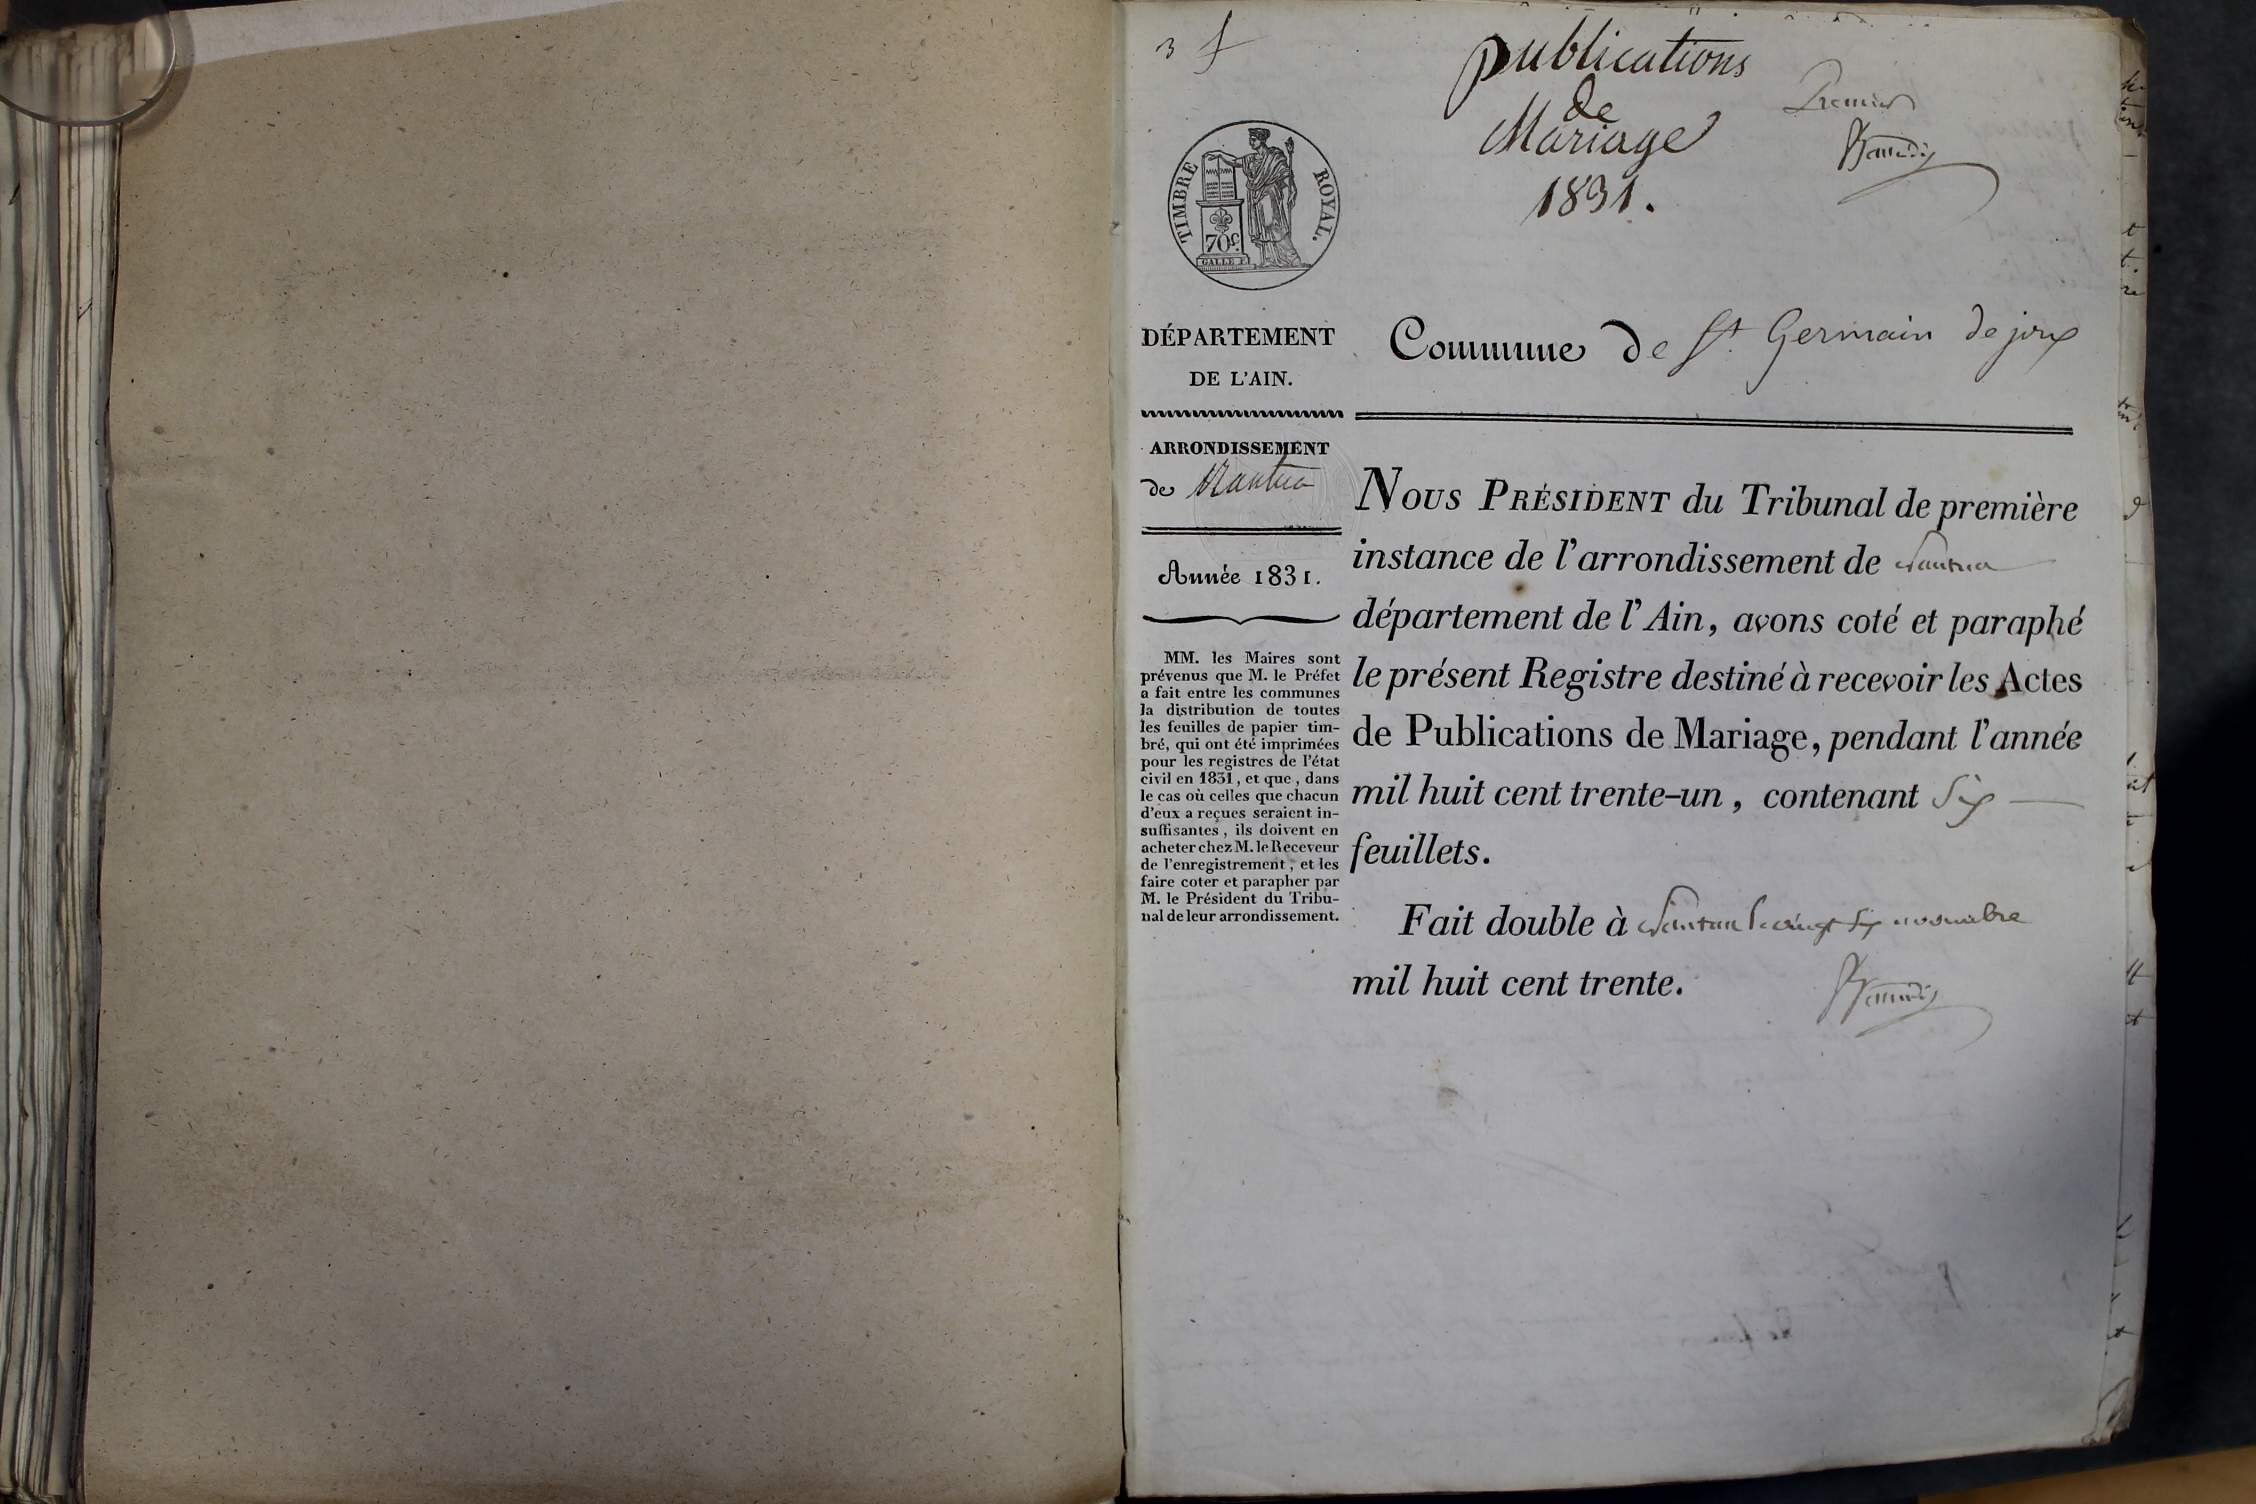 3 f
publications
de
Mariage
1831.
Premier
TIMBRE ROYAL.
70 c.
GALLE F.
DÉPARTEMENT
DE L'AIN.
ARRONDISSEMENT
de Nantua
Année 1831.
MM. les Maires sont
prévenus que M. le Préfet
a fait entre les communes
la distribution de toutes
les feuilles de papier tim-
bré, qui ont été imprimées
pour les registres de l'état
civil en 1831, et que, dans
le cas où celles que chacun
d'eux a reçues seraient in-
suffisantes, ils doivent en
acheter chez M. le Receveur
de l'enregistrement, et les
faire coter et parapher par
M. le Président du Tribu-
nal de leur arrondissement.
Commune de St. Germain de joux
NOUS PRÉSIDENT du Tribunal de première
instance de l'arrondissement de Nantua
département de l'Ain, avons coté et paraphé
le présent Registre destiné à recevoir les Actes
de Publications de Mariage, pendant l'année
mil huit cent trente-un, contenant Six
feuillets.
Fait double à Nantua le vingt six novembre
mil huit cent trente.